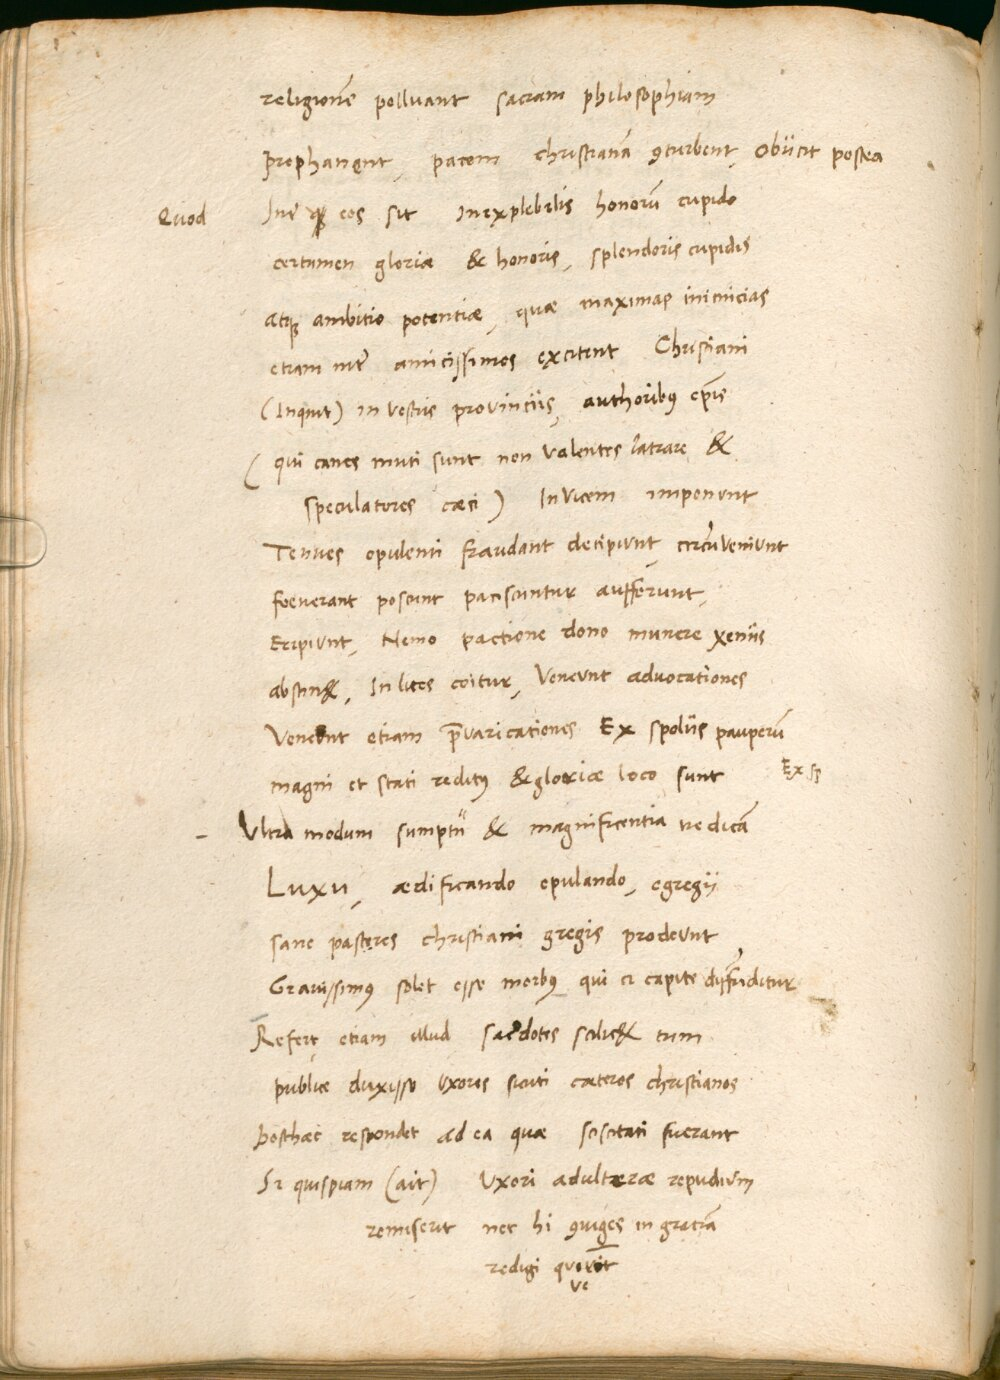 religionē polluant sacram philosophiam
prophanent, pacem christianā 9turbent, obiicit postea
Quod Int̃ eos sit inexplebilis honorū cupido
certamen gloriæ & honoris, splendoris cupidis
atq; ambitio potentiæ, quæ maximas inimicias
etiam int̃ amicissimos excitent Christiani
(Inquit) in vestris provinciis, authorib9 ep̄is
( qui canes muti sunt non valentes latrare &
speculatores cæci ) Invicem imponunt
Tenues opulenti fraudant decipiunt, circũveniunt
foenerant poscunt paciscuntur aufferunt,
Eripiunt, Nemo pactione dono munere xeniis
abstin&, In lites coitur, Veneunt advocationes
Veneunt etiam p̄varicationes Ex spoliis pauperū
magni et stati redit9 & gloriæ loco sunt Ex sp
Ultra modum sumptū & magnificentia ne dicā
Luxu, ædificando epulando, egregii
sane pastores christiani gregis prodeunt
Gravissim9 solet esse morb9 qui a capite diffūditur
Refert, etiam illud sac̃dotes scilic& tum
publice duxisse uxores sicuti cæteros christianos
Posthæc respondet ad ea quæ sciscitati fuerant
Si quispiam (ait) Uxori adulteræ repudium
remiserit nec hi 9iuges in gratiā
redigi
ve